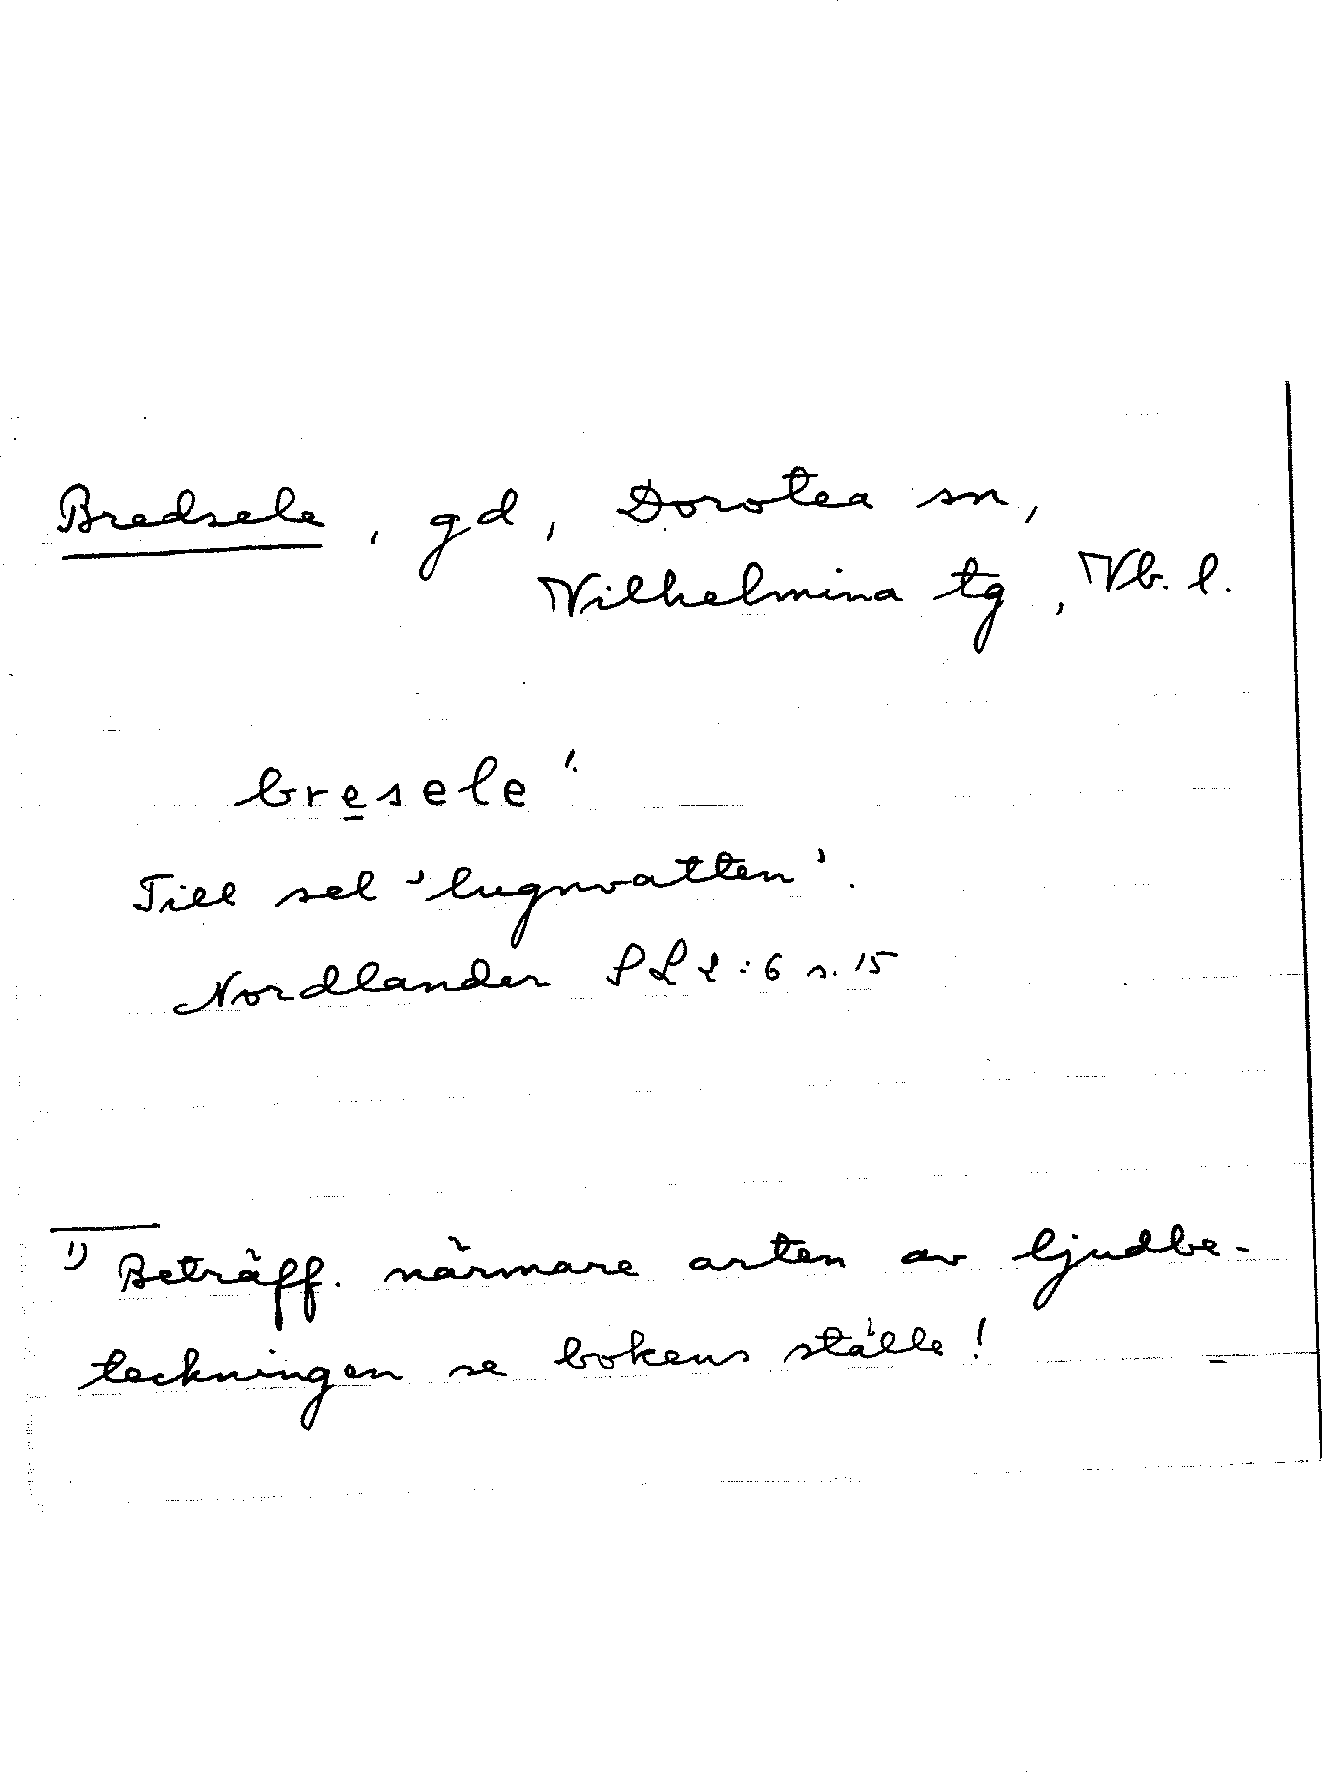 Bredsele, gd, Dorotea sn,
Vilhelmina tg, Vb. l.
bresele ¹.
Till sel 'lugnvatten'.
Nordlander SL 2:6 s. 15
1) Beträff. närmare arten av ljudbe-
teckningen se bokens ställe!